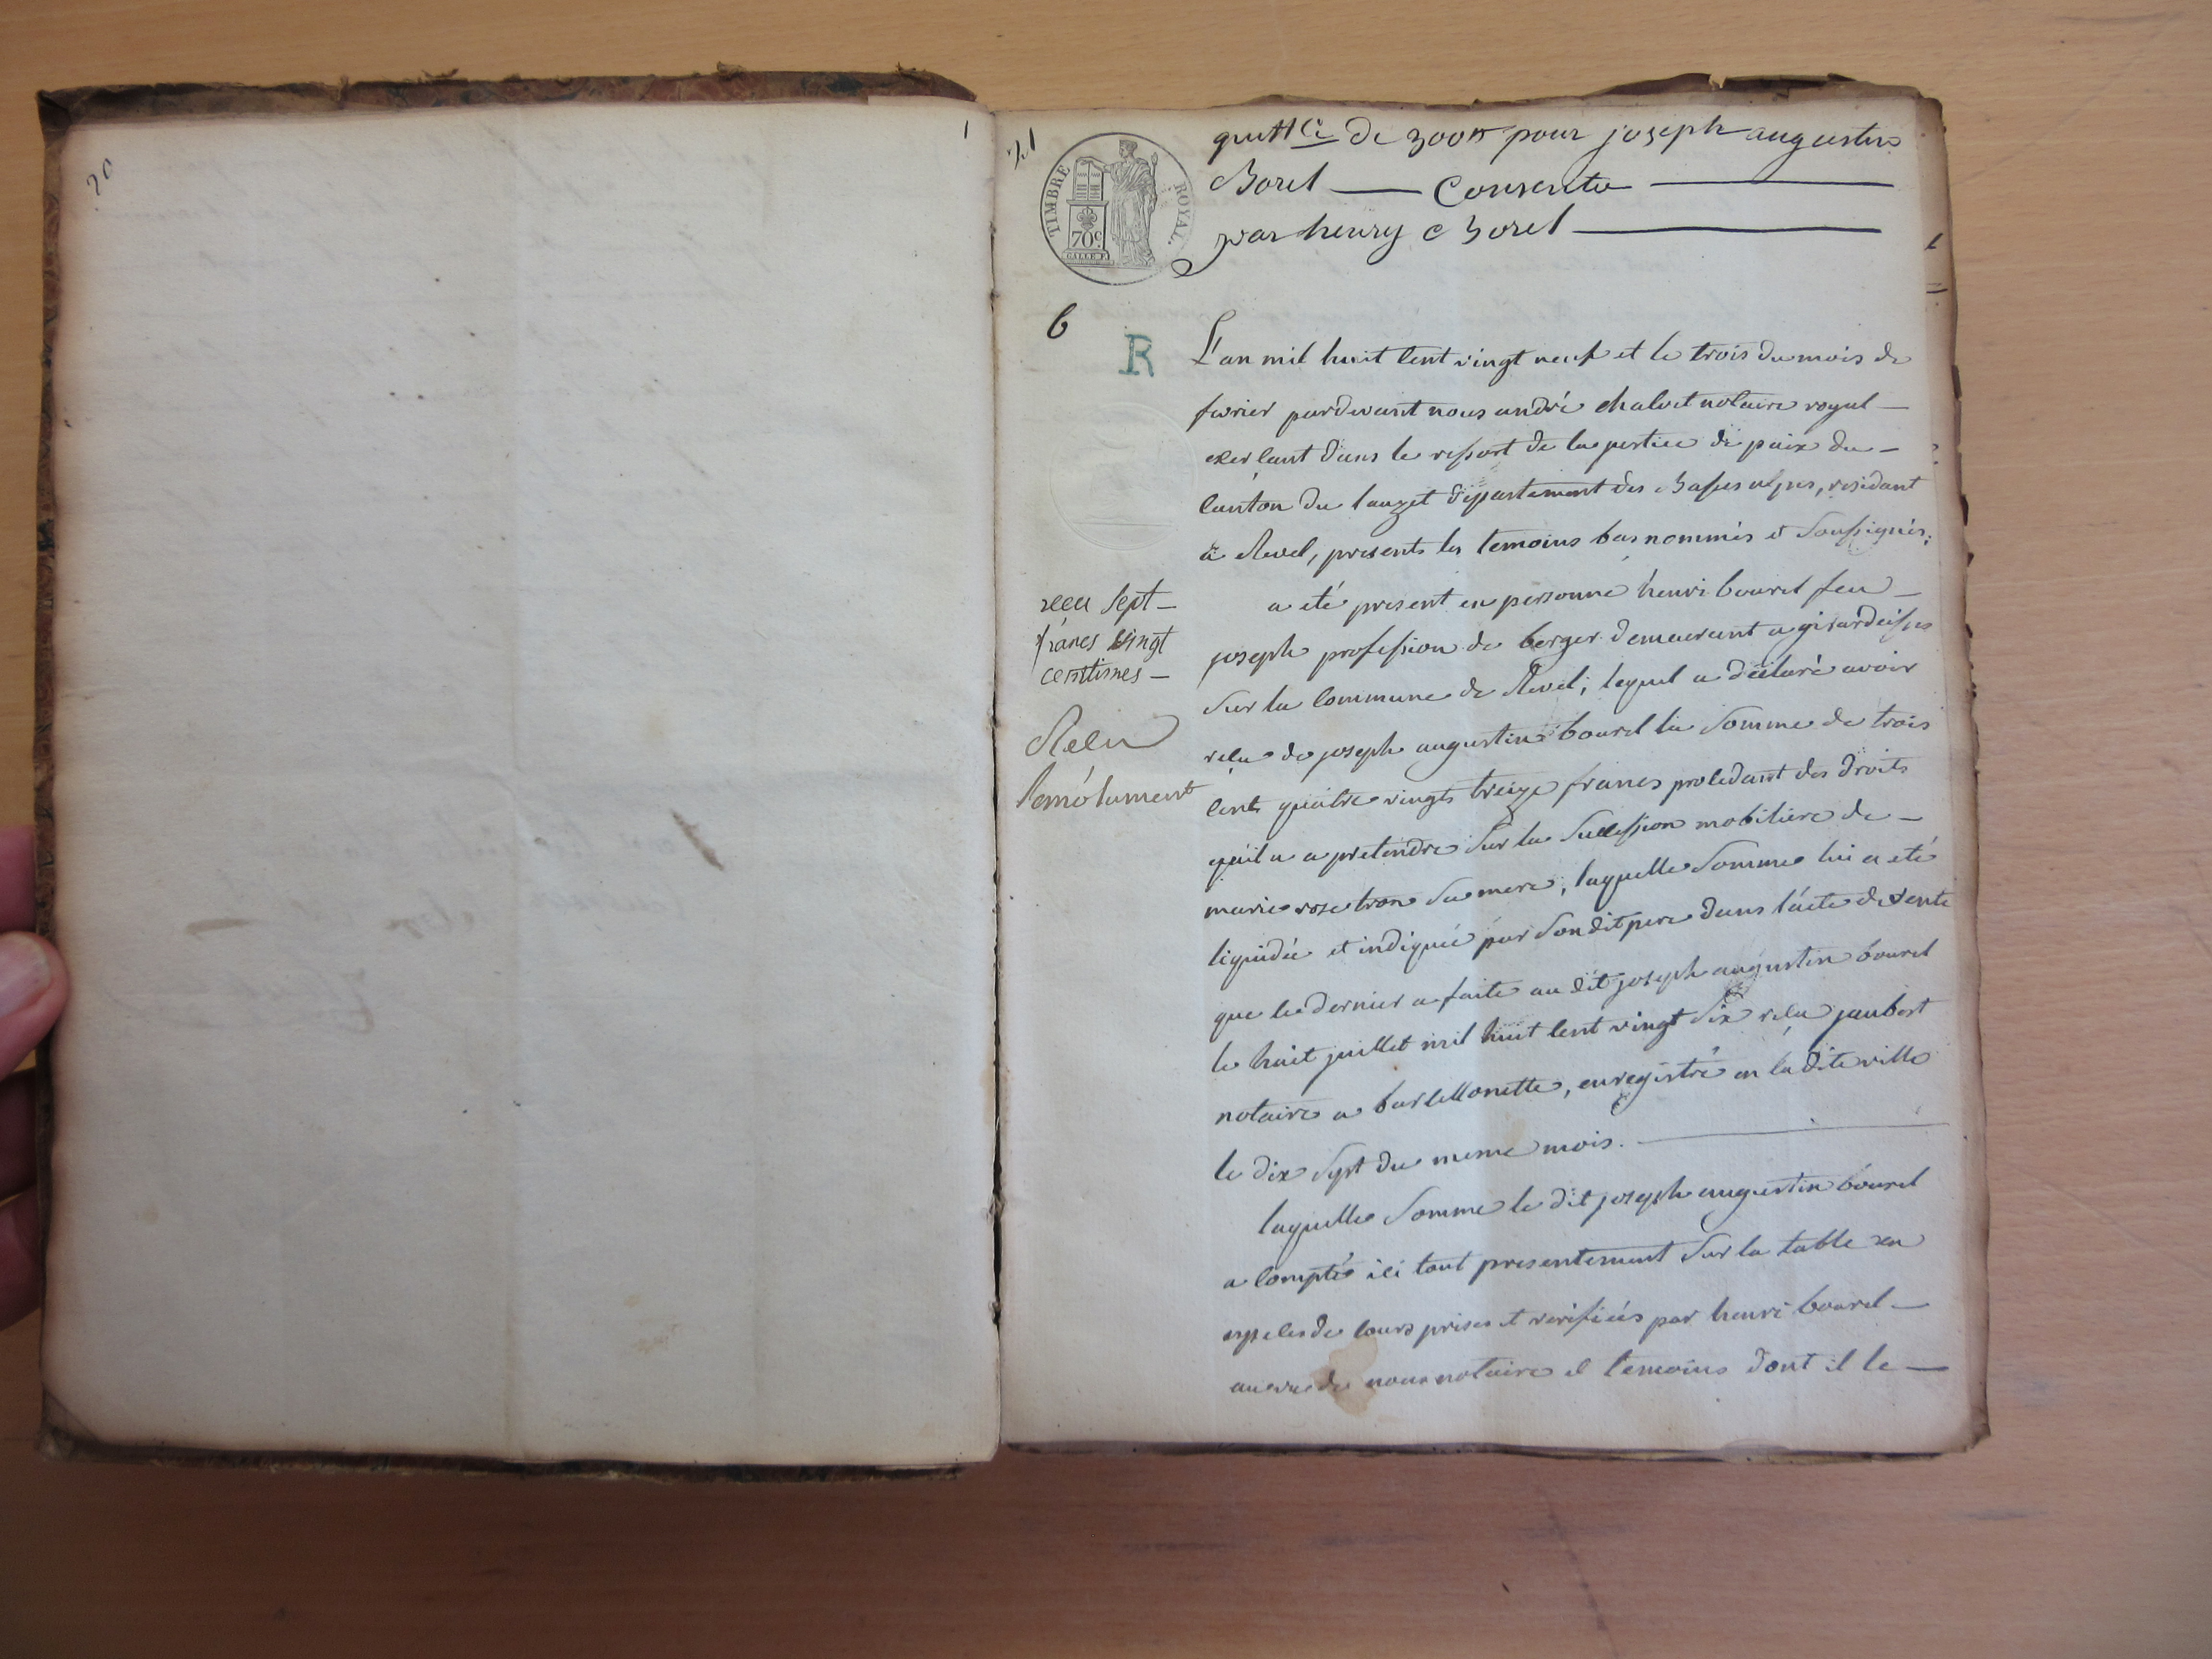 20
1
21
TIMBRE ROYAL.
70c
quittce de 300# pour joseph augustin
Borel — Consentie —
par henry Borel —
6
R
L'an mil huit cent vingt neuf et le trois du mois de
fevrier pardevant nous andré chalvet notaire royal —
exerçant dans le ressort de la justice de paix du —
canton du lauzet departement des Basses alpes, residant
à Revel, presents les temoins bas nommés et soussignés;
a été present en personne henri bourel feu —
joseph profession de berger demeurant a girardeisses
sur la commune de Revel; lequel a déclaré avoir
reçu de joseph augustin bourel la somme de trois
cents quatre vingts treize francs procedant des droits
qu'il a a pretendre sur la succession mobiliere de —
marie rose tron sa mere, laquelle somme lui a eté
liquidée et indiquée par son dit pere dans l'acte de vente
que ce dernier a faite au dit joseph augustin bourel
le huit juillet mil huit cent vingt six reçu jaubert
notaire a barcellonette, enregistré en la dite ville
le dix sept du meme mois. —
laquelle somme le dit joseph augustin bourel
a compté ici tout presentement sur la table en
especes de cours prises et verifiées par henri bourel —
au vu de nous notaire et temoins dont il le —
reçu sept —
francs vingt
centimes —
Reçu
l'emolument